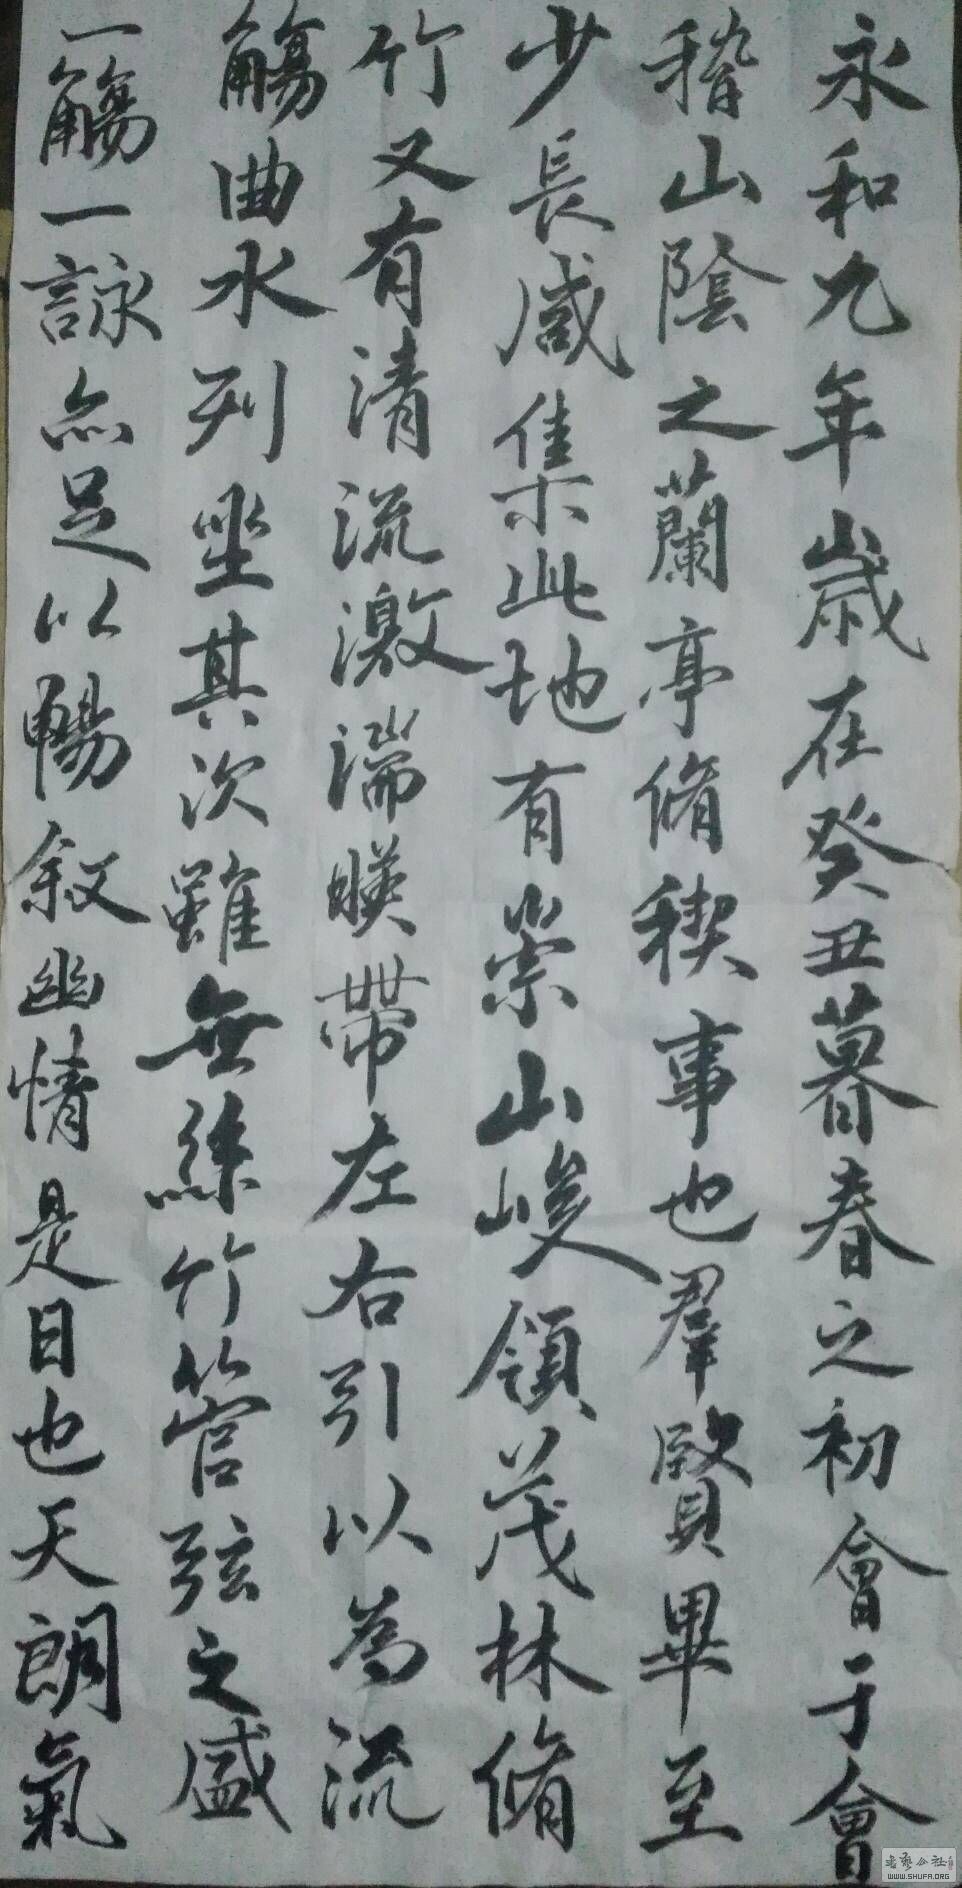 永和九年歲在癸丑暮春之初會于會
稽山陰之蘭亭脩稧事也羣賢畢至
少長咸集此地有崇山峻領茂林脩
竹又有清流激湍暎帶左右引以為流
觴曲水列坐其次雖無絲竹管弦之盛
一觴一詠亦足以暢叙幽情是日也天朗氣
WWW.SHUFA.ORG